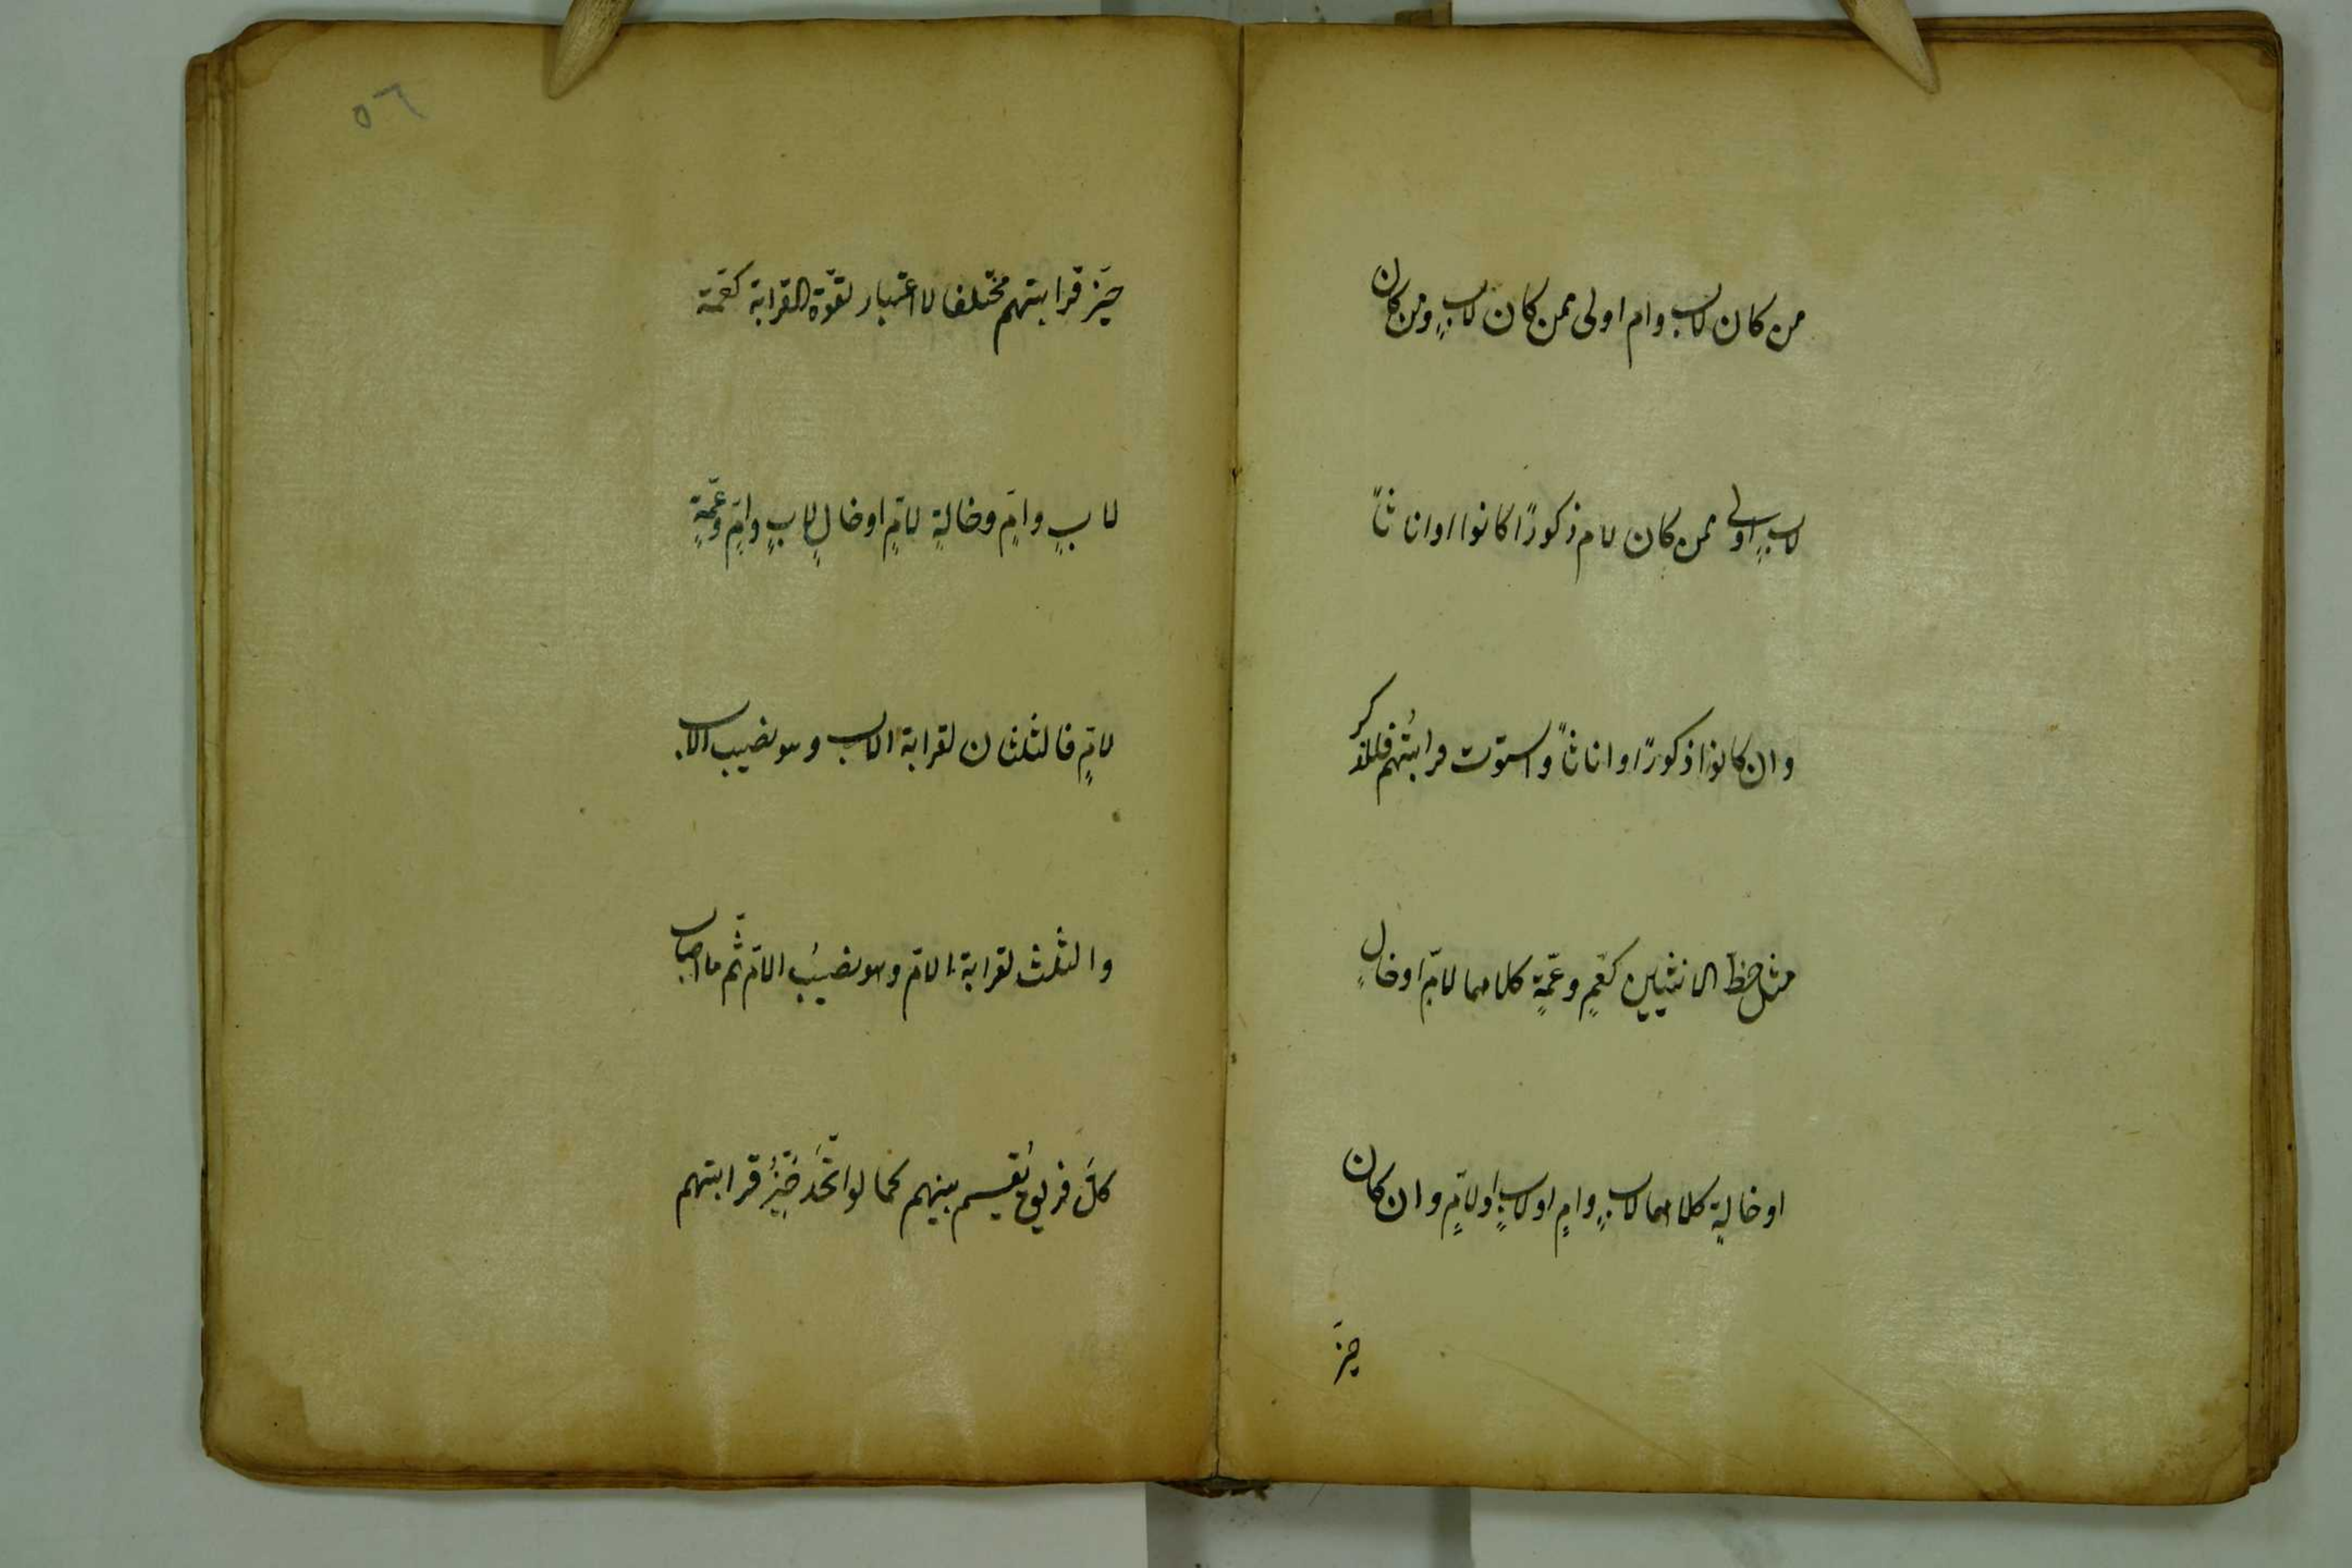 من كان لاب وام اولى ممن كان لابٍ ومن كان
لابٍ اولى ممن كان لام ذكورًا كانوا او اناثاً
وان كانوا ذكورًا واناثاً واستوت قرابتُهم فللذكر
مثل حظ الانثيين كعمٍ وعمّةٍ كلاهما لامٍّ او خالٍ
او خالةٍ كلاهما لابٍ وامٍ او لابٍ او لامٍّ وان كان
حيّز
٥٦
حيّز قرابتهم مختلفا لا اعتبار لقوّة القرابة كعمّة
لابٍ وامٍّ وخالةٍ لامٍّ او خالٍ لابٍ وامٍّ وعمّةٍ
لامٍّ فالثلثان لقرابة الاب وهو نصيب الاب
والثلث لقرابة الامّ وهو نصيبُ الامّ ثم ما اصاب
كلَّ فريقٍ يُقسم بينهم كما لو اتّحَد حَيّزُ قرابتهم